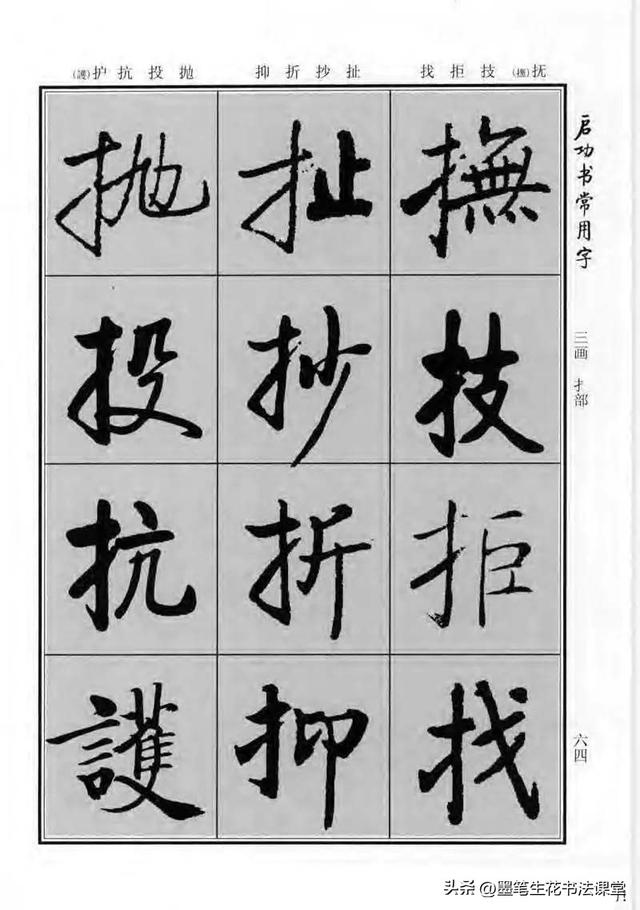 (護)护抗投抛 抑折抄扯 找拒技(撫)抚
启功书常用字
三画 扌部
六四
撫
技
拒
找
扯
抄
折
抑
抛
投
抗
護
头条@墨笔生花书法课堂